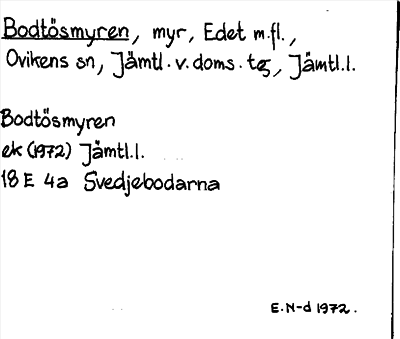 Bodtösmyren, myr, Edet m.fl.,
Ovikens sn, Jämtl.v.doms.tg, Jämtl.l.
Bodtösmyren
ek (1972) Jämtl.l.
18 E 4a Svedjebodarna
E.N-d 1972.